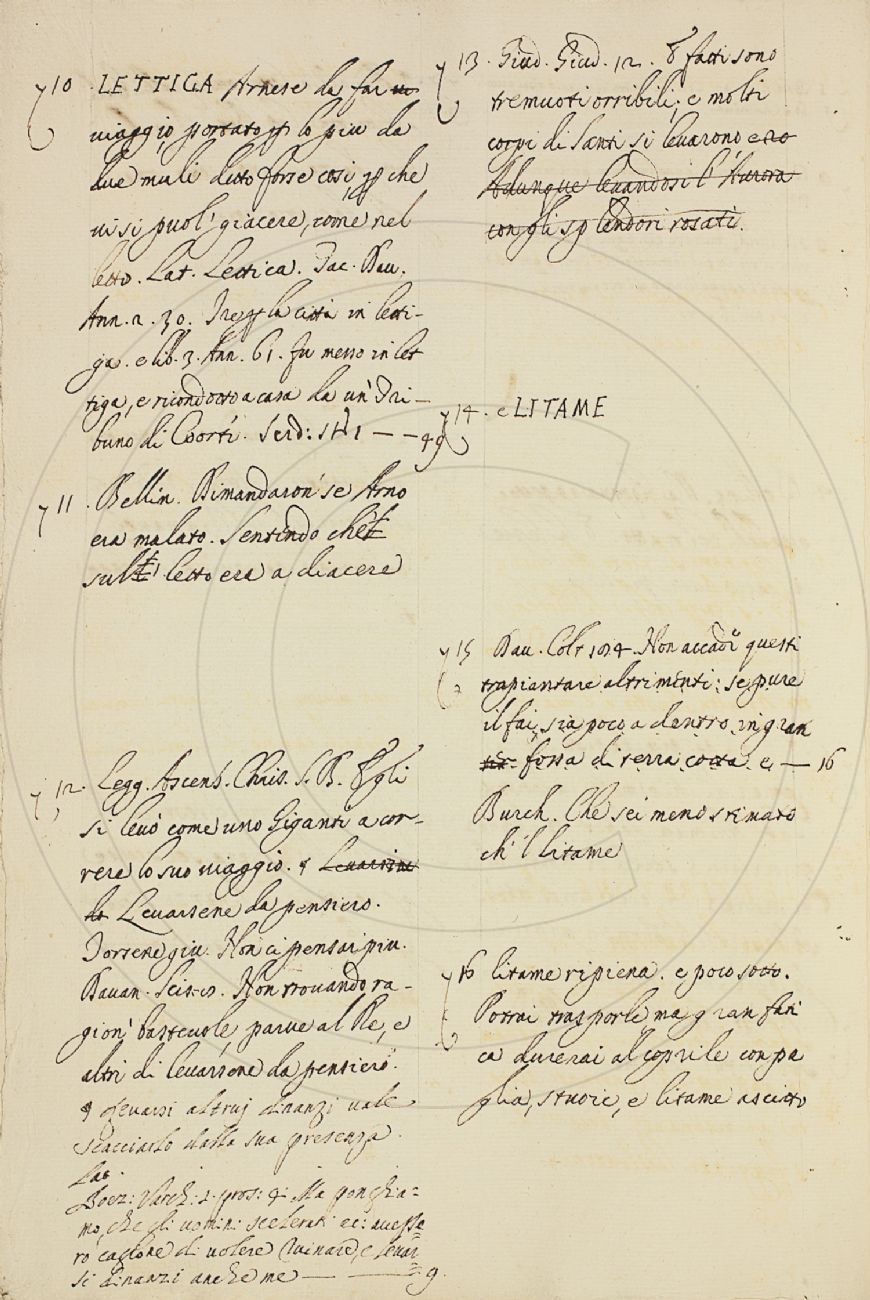 710 · LETTIGA Arnese da far un
viaggio portato p lo piu da
due muli detto forse cosi, p che
vi si puol' giacere, come nel
letto. Lat. Lectica. Tac. Dav.
Ann. 2. 30. Ire p la città in letti-
ga. e lib. 3. Ann. 61. fu messo in let
tiga, e ricondotto a casa da un' Tri-
buno di Coorti. Serd: st: 1 — — 49
711 · Bellin. Rimandaron' se Arno
era malato. Sentendo che
sul letto era a diacere
712 · Legg. Ascens. Chris. S. B. Egli
si levò come uno Giganti a cor-
rere lo suo viaggio. Levarsine
da Levarsene da pensiero.
Torsene giu. Non ci pensar piu.
Davan. Scis. 19. Non trovando ra-
gion' bastevole, parve al Re, e
altri di levarsene da pensiero.
Levarsi altruj dinanzi vale
scacciarlo dalla sua presenza.
Lat.
Boez: Varch: 1. pros: 4. Ma ponghia=
mo, che gli uomini scelerati ec: avesse=
ro cagione di volere ruinare, e levar
si dinanzi anche me — — 9.
713 · Giud. Giud. 12. E fatti sono
tremuoti orribili; e molti
corpi di Santi si levarono e ro
Adunque levandosi l'Aurora
con gli splendori rosati.
714 · e LITAME
715 Dav. Colt 194. Non accade questi
trapiantare altrimenti: se pure
il fai, sia poco a dentro in gran
fossa di terra cotta e, — 16
Burch. Che sei meno stimato
ch' 'l litame
716 litame ripiena. e poco sotto.
Potrai trasporle ma gran fati
ca durerai al coprile con pa
glia, stuoie, e litame asciutto